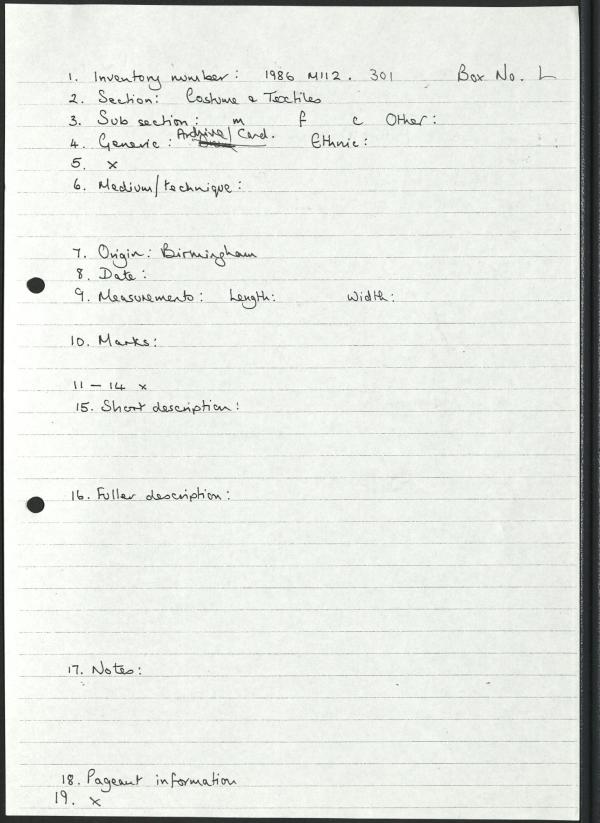 1. Inventory number: 1986 M112. 301 Box No. L
2. Section: Costume & Textiles
3. Sub section: m f c Other:
4. Generic: Archive/Card. Ethnic:
5. x
6. Medium/technique:
7. Origin: Birmingham
8. Date:
9. Measurements: Length: Width:
10. Marks:
11 - 14 x
15. Short description:
16. Fuller description:
17. Notes:
18. Pageant information
19. x